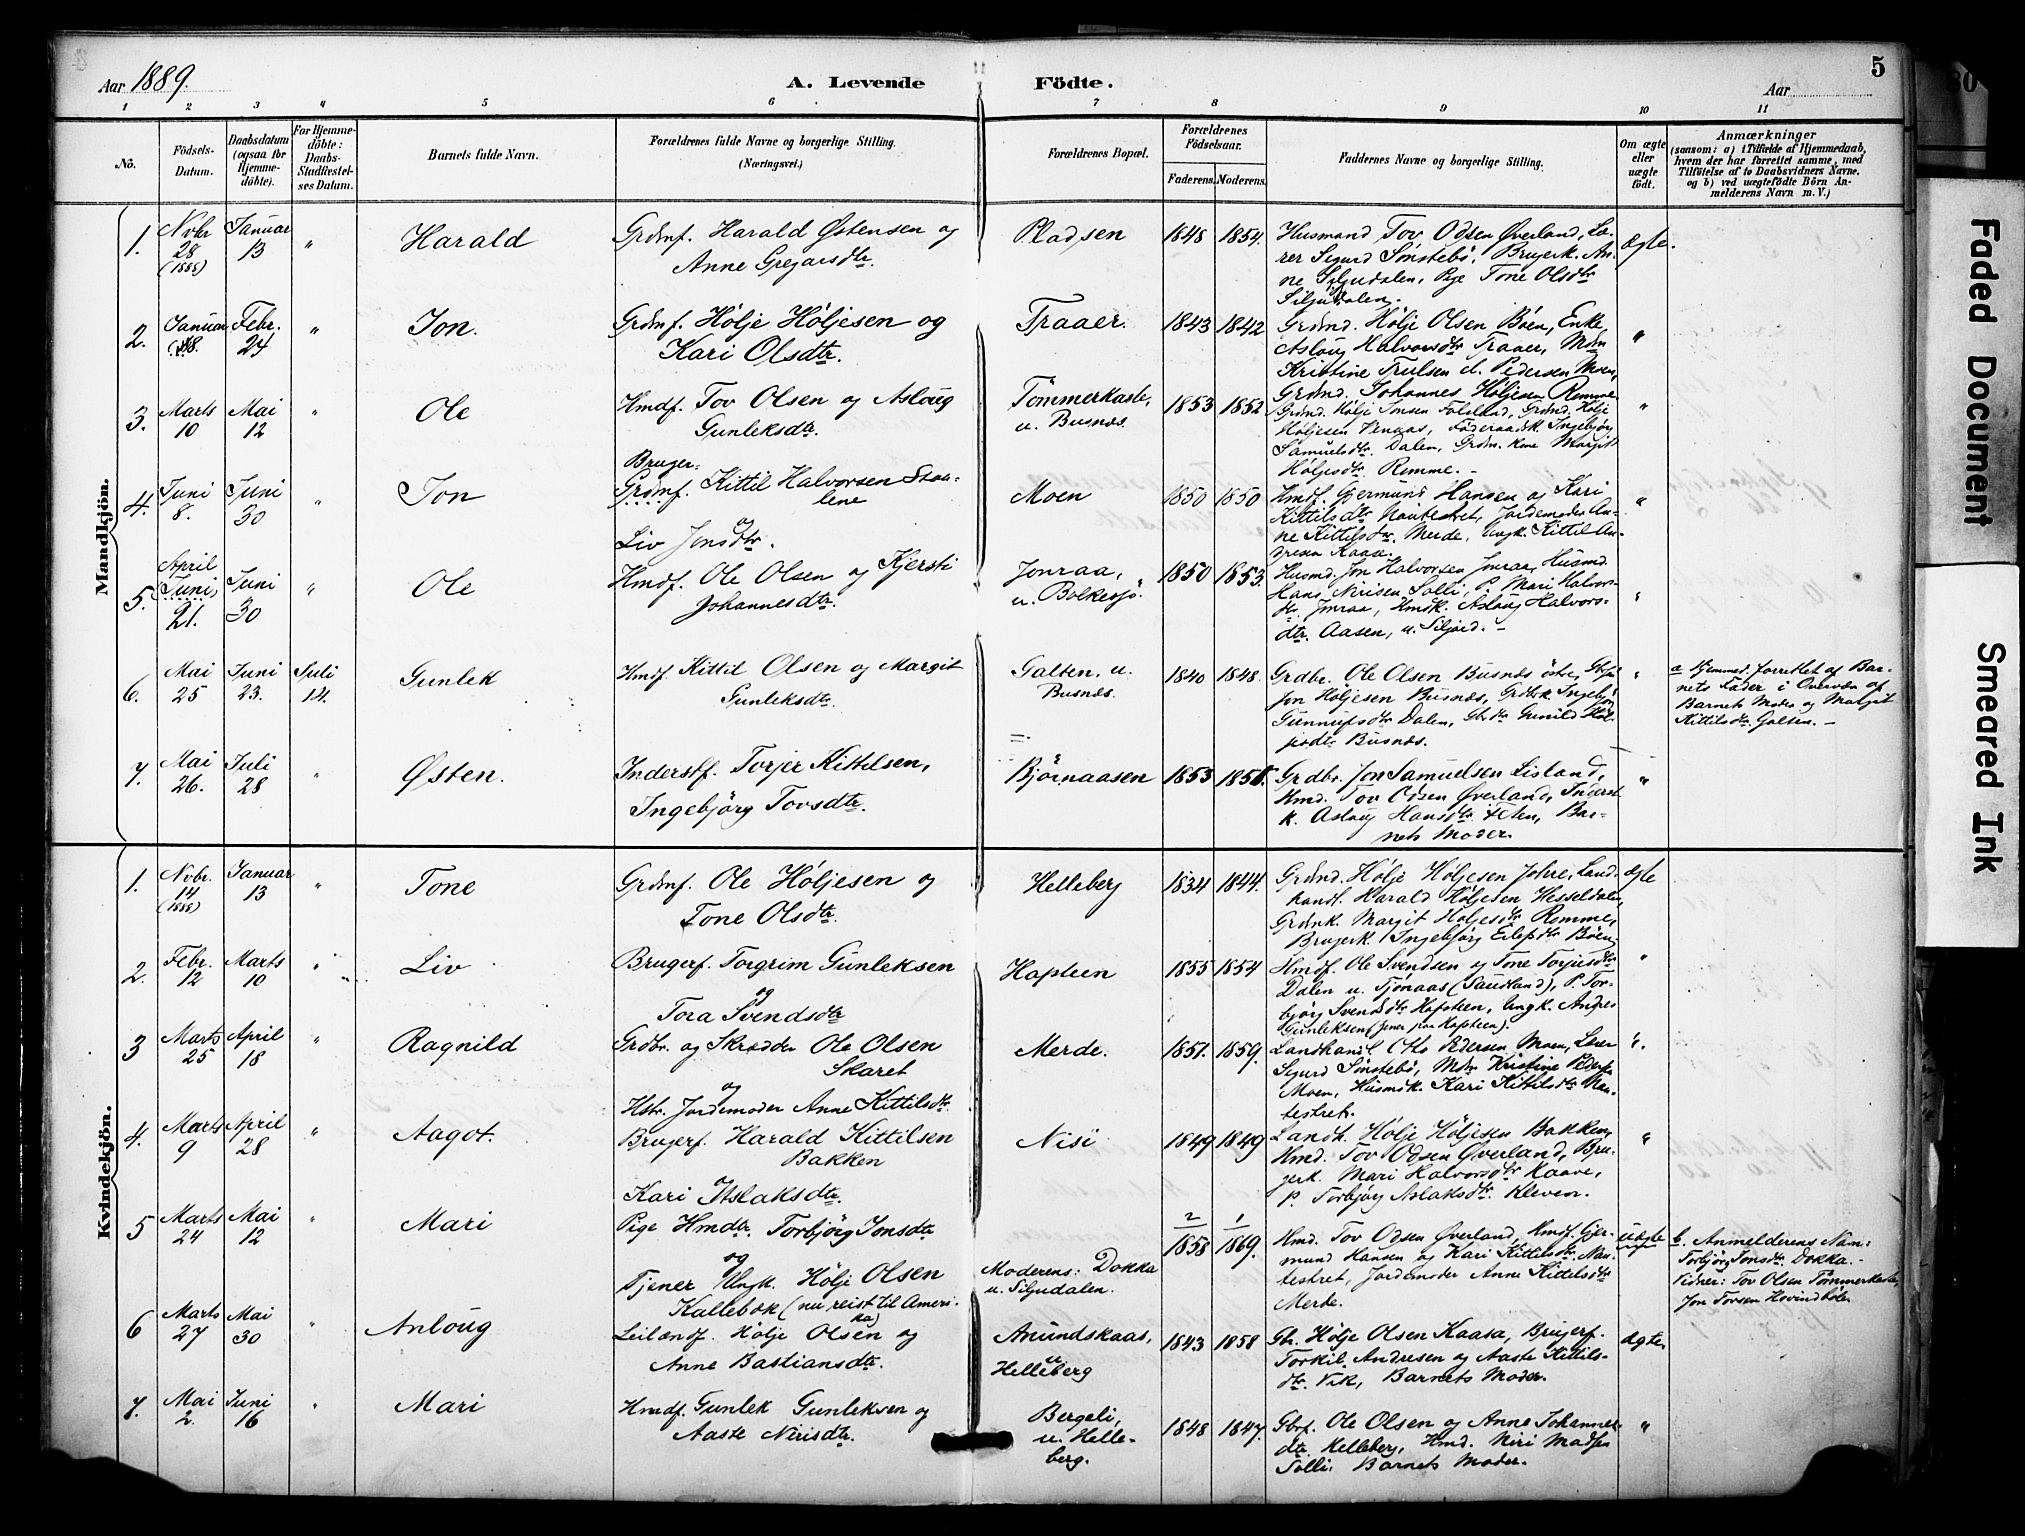 Aar 1889.
A. Levende Födte.
Aar
5
1 2 3 4 5 6 7 8 9 10 11
No.
Födsels-Datum.
Daabsdatum (ogsaa for Hjemmedöbte).
For Hjemmedöbte: Daabs-Stadfæstelses Datum.
Barnets fulde Navn.
Forældrenes fulde Navne og borgerlige Stilling. (Næringsvei.)
Forældrenes Bopæl.
Forældrenes Födselsaar.
Faderens. Moderens.
Faddernes Navne og borgerlige Stilling.
Om ægte eller uægte födt.
Anmærkninger
(saasom: a) i Tilfælde af Hjemmedaab, hvem der har forrettet samme, med Tilföielse af to Daabsvidners Navne. og b) ved uægtefödte Börn Anmelderens Navn m. V.)
Mandkjön.
1. Novbr 28 (1888) Januar 13 " Harald
Grdmf. Harald Østensen og
Anne Gregarsdtr.
Pladsen 1848 1854.
Husmand Tov Odsen Øverland, Læ-
rer Sigurd Sønstebö, Brugerk. An-
ne Siljudalen, Pige Tone Olsdtr
Siljudalen.
ægte.
2. Januar 18. Febr. 24 " Jon.
Grdmf. Hølje Høljesen og
Kari Olsdtr.
Traaer. 1843 1842
Grdmd. Hølje Olsen Böen, Enke
Aslaug Halvorsdtr Traaer, Mdm
Kristine Trulsen d. Pedersen Moen,
"
3. Marts 10 Mai 12 " Ole
Hmdf. Tov Olsen og Asloug
Gunleksdtr.
Tömmerkaste, u. Busnæs. 1853 1852
Grdmd. Johannes Høljesen Romme
Grdmd. Hølje Jonsen Folseland, Grdmd. Hølje
Høljesen Venaas, Föderaadsk. Ingebjörg
Samuelsdtr. Dalen, Grdm. kone Margit
Høljesdtr. Romme. -
"
4. Juni 8. Juni 30 " Jon
Bruger-
Grdmf. Kittil Halvorsen Staa-
lene
og
Liv Jonsdtr.
Moen 1850 1850
Hmdf. Gjermund Hansen og Kari
Kittilsdtr Nautestret, Jordemoder An-
ne Kittilsdtr. Merde, Ungk. Kittil An-
dresen Kaase.
"
5. April Juni 21. Juni 30 " Ole
Hmdf. Ole Olsen og Kjersti
Johannesdtr.
Jonraa, u. Bolkesjø. 1850 1853.
Husmd. Jon Halvorsen Jonraa, Husmd.
Hans Nirisen Solli, P. Mari Halvors-
dtr. Jonraa, Hmdk. Aslaug Halvors-
dtr. Aasen, u. Siljord. -
"
6. Mai 25 Juni 23. Juli 14. Gunlek
Hmdf. Kittil Olsen og Margit
Gunleksdtr.
Galten, u. Busnæs. 1840 1848.
Grdbr. Ole Olsen Busnæs östre,
Jon Høljesen Busnæs, Grdbk. Ingebj
Gunnulfsdtr Dalen, Gbrdtr Gunild Høl-
jesdtr Busnæs.
"
a Hjemmed. forrettet af Bar-
nets Fader i Overvær af
Barnets Moder og Margit
Kittilsdtr. Galten. -
7. Mai 26. Juli 28 " Østen.
Inderstf. Torjer Kittilsen,
Ingebjörg Tovsdtr.
Bjørnaasen 1853
Grdbr. Jon Samuelsen Lisland,
Hmd. Tov Odsen Øverland, Inderst
k. Aslaug Hansdtr. Teten, Bar-
nets Moder.
"
Kvindekjön.
1. Novbr. 14 (1888) Januar 13 " Tone
Grdmf. Ole Høljesen og
Tone Olsdtr.
Helleberg 1834 1844.
Grdmd. Hølje Høljesen Johre, Land-
handl. Harald Høljesen Hesseldalen,
Grdmk. Margit Høljesdtr Romme,
Brugerk. Ingebjörg Eilefsdtr Böen
ægte
2. Febr. 12 Marts 10 " Liv
Brugerf. Torgrim Gunleksen
og
Tora Svendsdtr
Hapteen 1855 1854
Hmdf. Ole Svendsen og Tone Torjusdtr
Dalen u. Tjönaas (Sauland), P. Tor-
björg Svendsdtr Hapsteen, Ungk. Andres
Gunleksen (tjener paa Hapsteen).
"
3 Marts 25 April 18 " Ragnild
Grdbr. og Skrædder Ole Olsen
Skaret
og
Hstr. Jordemoder Anne Kittilsdtr.
Merde. 1851. 1859.
Landhandl. Otto Pedersen Moen, Lærer
Sigurd Sönstebö, Mdm Kristine Peders
Moen, Husmk. Kari Kittilsdtr Nau-
testret.
"
4. Marts 9 April 28 " Aagot.
Brugerf. Harald Kittilsen
Bakken
og
Kari Aslaksdtr.
Nisi 1849 1849
Landh. Hølje Høljesen Bakken,
Hmd. Tov Odsen Øverland, Bru-
gerk. Mari Halvorsdtr Kaave,
P. Torbjörg Aslaksdtr. Kleven.
"
5 Marts 24 Mai 12 " Mari
Pige Hmdtr. Torbjörg Jonsdtr
og
Tjener Ungk. Hölje Olsen
Kallebæk (nu reist til Ameri-
ka)
Moderens: Dokka u. Siljudalen.
2/1858 1/1869.
Hmd. Tov Odsen Øverland, Hmdf. Gjer-
mund Hansen og Kari Kittilsdtr. Nau-
testret, Jordemoder Anne Kittilsdtr
Merde.
uægte
b. Anmelderens Navn:
Torbjörg Jonsdtr. Dokka. -
Vidner: Tov Olsen Tömmerkaste,
Jon Torsen Hovindböle
6 Marts 27 Mai 30 " Anloug
Leilændf. Hølje Olsen og
Anne Bastiansdtr.
Anundskaas, u Helleberg 1843 1858
Gbr. Hølje Olsen Kaasa, Brugerf.
Torkil Andresen og Aaste Kittils-
dtr. Vik, Barnets Moder.
ægte
7. Mai 2. Juni 16 " Mari
Hmdf. Gunlek Gunleksen og
Aaste Nirisdtr.
Bergeli, u. Helle-
berg. 1848 1847.
Gbrf. Ole Olsen og Anne Johannes
dtr. Helleberg, Hmd. Niri Madsen
Solli, Barnets Moder.
"
80
Faded Document
Smeared Ink